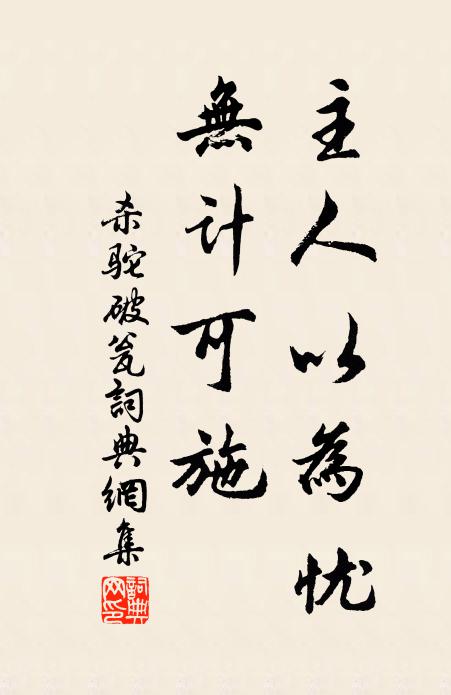 主人以為忧
無计可施
杀驼破瓮詞典網集
詞典网印